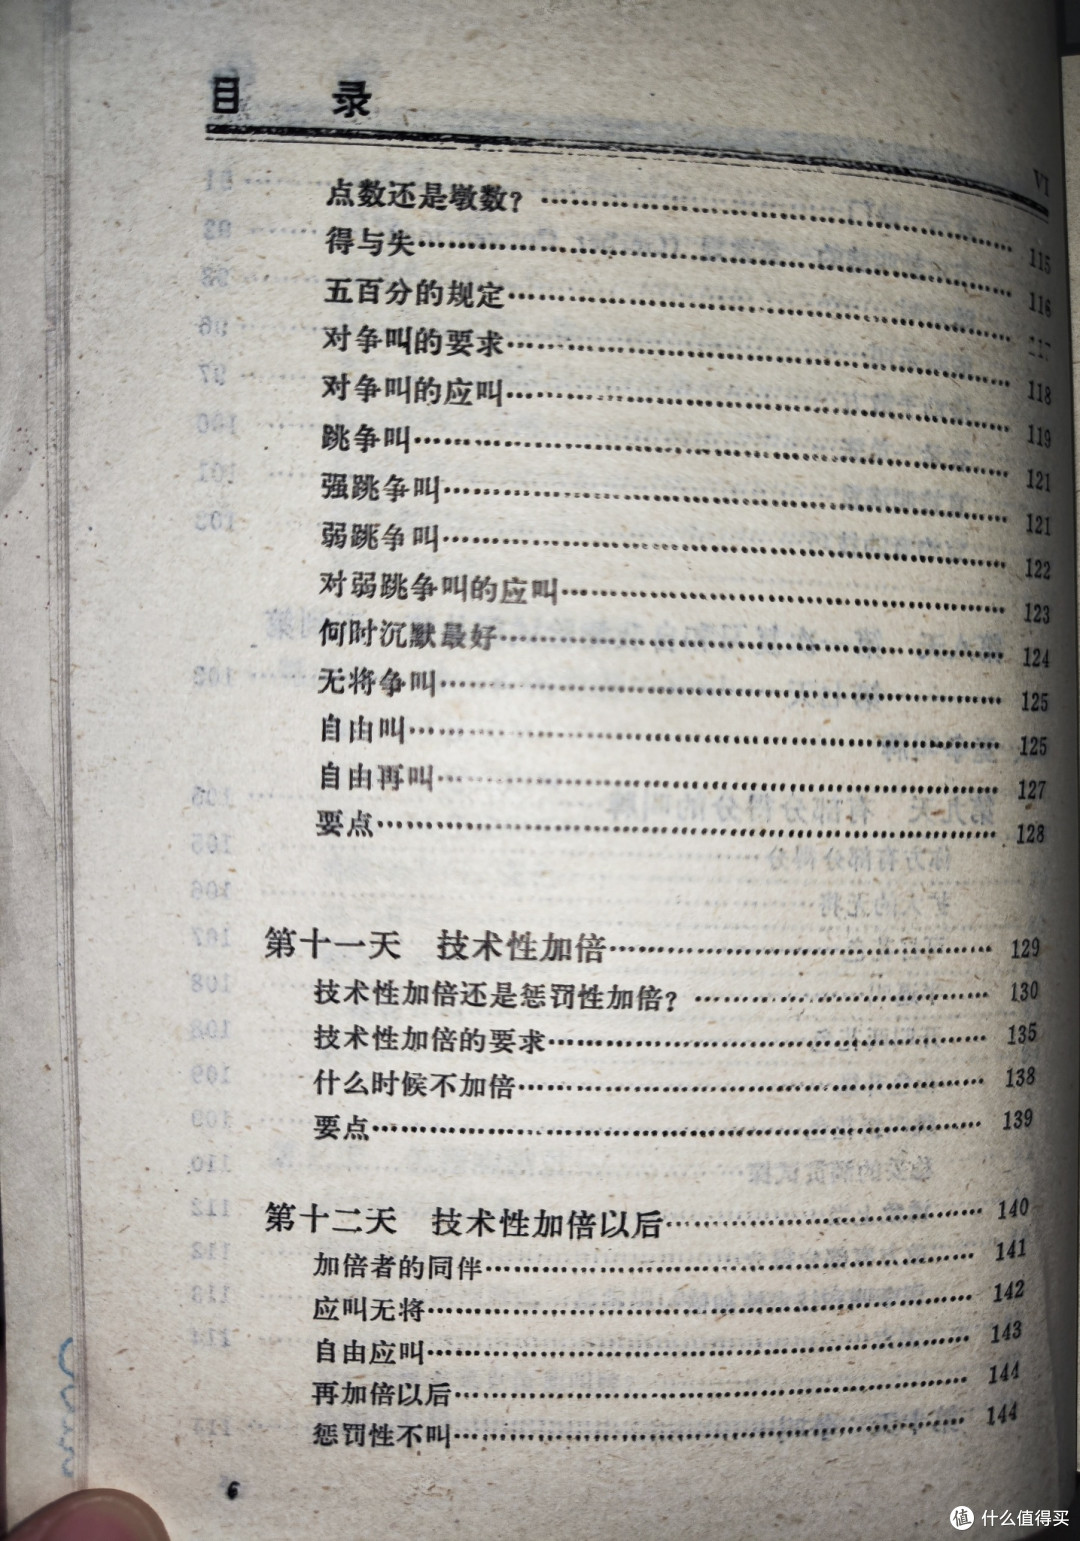 目 录
VI
点数还是墩数？ 115
得与失 116
五百分的规定 117
对争叫的要求 118
对争叫的应叫 119
跳争叫 121
强跳争叫 121
弱跳争叫 122
对弱跳争叫的应叫 123
何时沉默最好 124
无将争叫 125
自由叫 125
自由再叫 127
要点 128
第十一天 技术性加倍 129
技术性加倍还是惩罚性加倍？ 130
技术性加倍的要求 135
什么时候不加倍 138
要点 139
第十二天 技术性加倍以后 140
加倍者的同伴 141
应叫无将 142
自由应叫 143
再加倍以后 144
惩罚性不叫 144
6
值 什么值得买